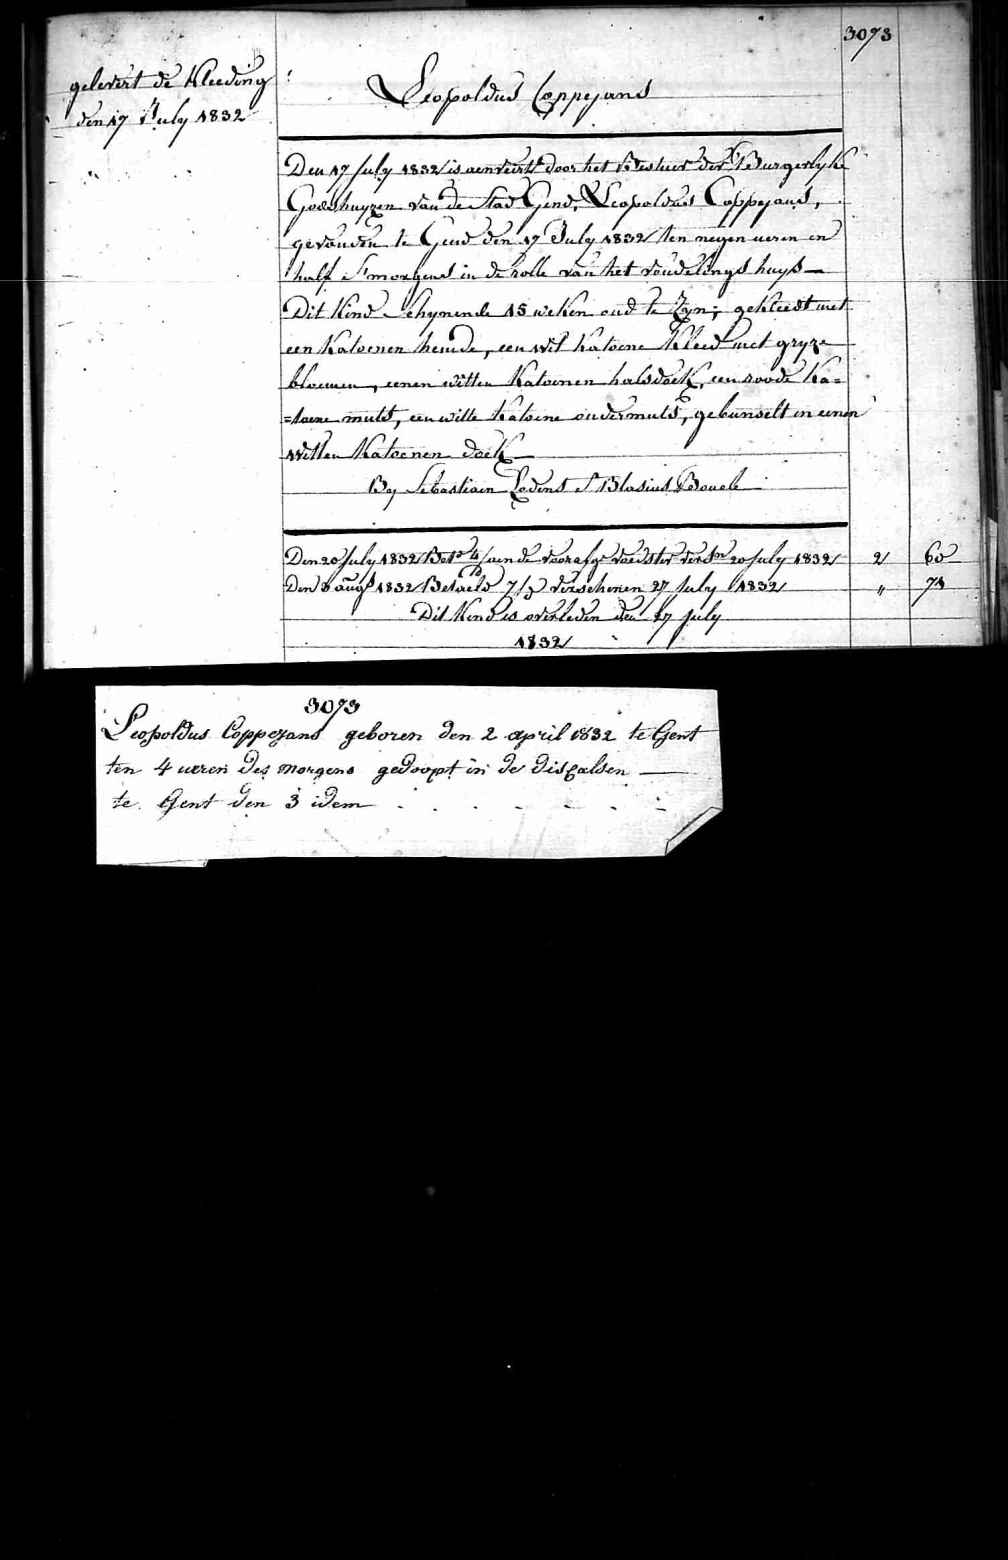 3073
gelevert de Kleeding
den 17 July 1832
Leopoldus Coppejans
Den 17 July 1832 is aenveirt door het Bestuer der Burgerlyke
Godshuyzen van de Stad Gend, Leopoldus Coppejans,
gevonden te Gend den 17 July 1832 ten negen ueren en
half S'morgens in de rolle van het vondelings huys —
Dit Kind schynende 15 weken oud te zyn; gekleedt met
een Katoenen hemde, een wit katoene Kleed met gryze
bloemen, eenen witten Katoenen halsdoek, een roode Ka=
=toene muts, een witte Katoene ondermuts, gebunselt in eenen
witten Katoenen doek —
By Sebastiaen Lodens St Blasius Bouele
Den 20 July 1832 Bet. 4/ aen de voorafge voedster versn 20 July 1832 2 60
Den 8 augs 1832 Betaeld 7/ verschenen 27 July 1832 " 74
Dit Kind is overleden den 27 July
1832
3073
Leopoldus Coppejans geboren den 2 april 1832 te Gent
ten 4 ueren des morgens gedoopt in de discalsen —
te Gent den 3 idem